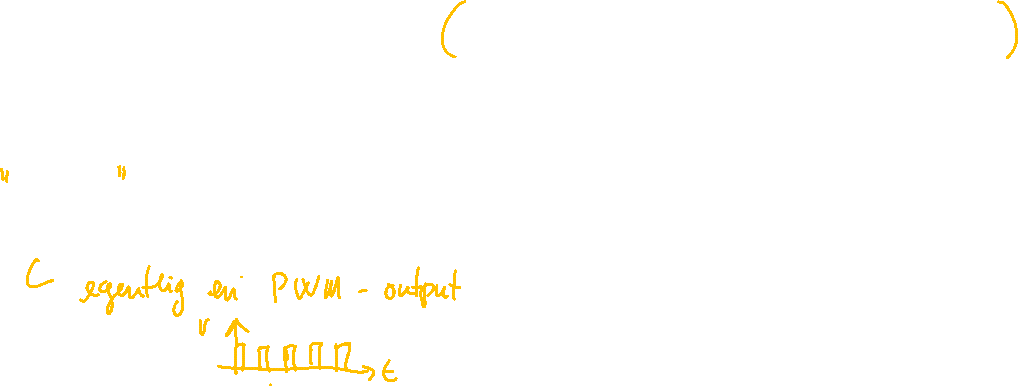 (                    )
"        "
egentlig en PWM-output
V
t